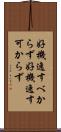 好機逸すべか
らず好機逸す
可からず